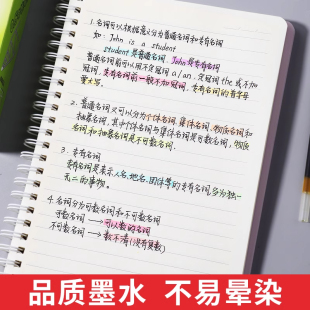 1.名词可以根据意义分为普通名词和专有名词
如: John is a student
student是普通名词, John是专有名词
普通名词前可以用不定冠词a/an.定冠词the或不加
冠词,专有名词前一般不加冠词.专有名词的首字母
要大写.
2.普通名词又可以分为个体名词,集体名词,物质名词和
抽象名词.其中个体名词与集体名词是可数名词,物质
名词和抽象名词是不可数名词.
3.专有名词
专有名词是表示人名,地名,团体等的专有名词,多为独一
无二的事物.
4.名词分为可数名词和不可数名词
可数名词→可以数的名词
不可数名词→数不清(没有复数)
品质墨水 不易晕染